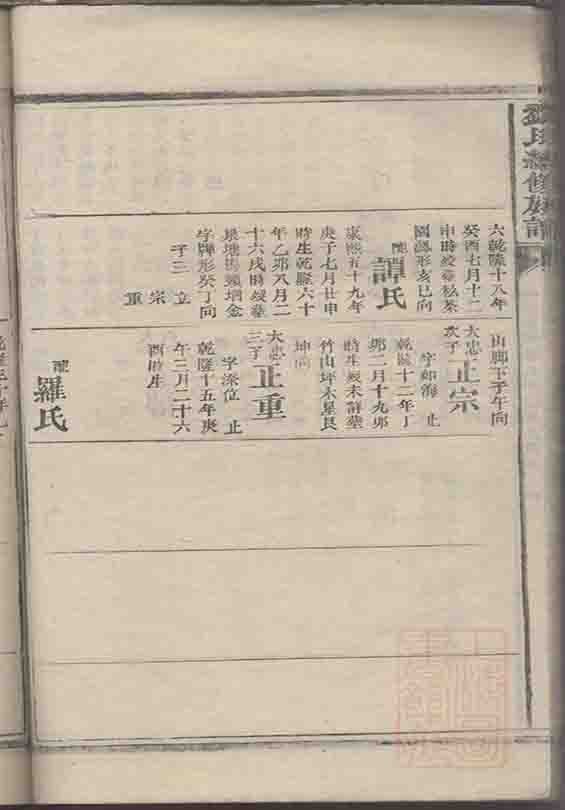 氏續修族譜
六乾隆十八年
癸酉七月十二
申時歿葬松茶
園螺形亥巳向
配譚氏
康熙五十九年
庚子七月廿申
時生乾隆六十
年乙卯八月二
十六戌時歿葬
字牌形癸丁向
子三 立 宗 重
山腳下子午向
大忠次子正宗
字郁海 止
乾隆十二年丁
卯二月十九卯
時生歿未詳葬
竹山坪木星艮
坤向
大忠三子正重
字深位 止
乾隆十五年庚
午二月二十六
酉時生
配羅氏